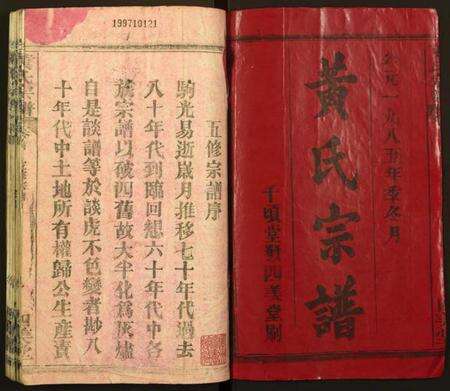 公元一九八五年季冬月
黃氏宗譜
千頃堂 四美堂刷
199710121
五修宗譜序
駒光易逝歲月推移七十年代過去
八十年代到臨回想六十年代中各
族宗譜以破四舊故大半化為灰燼
自是談譜等於談虎不色變者尠八
十年代中土地所有權歸公生產責